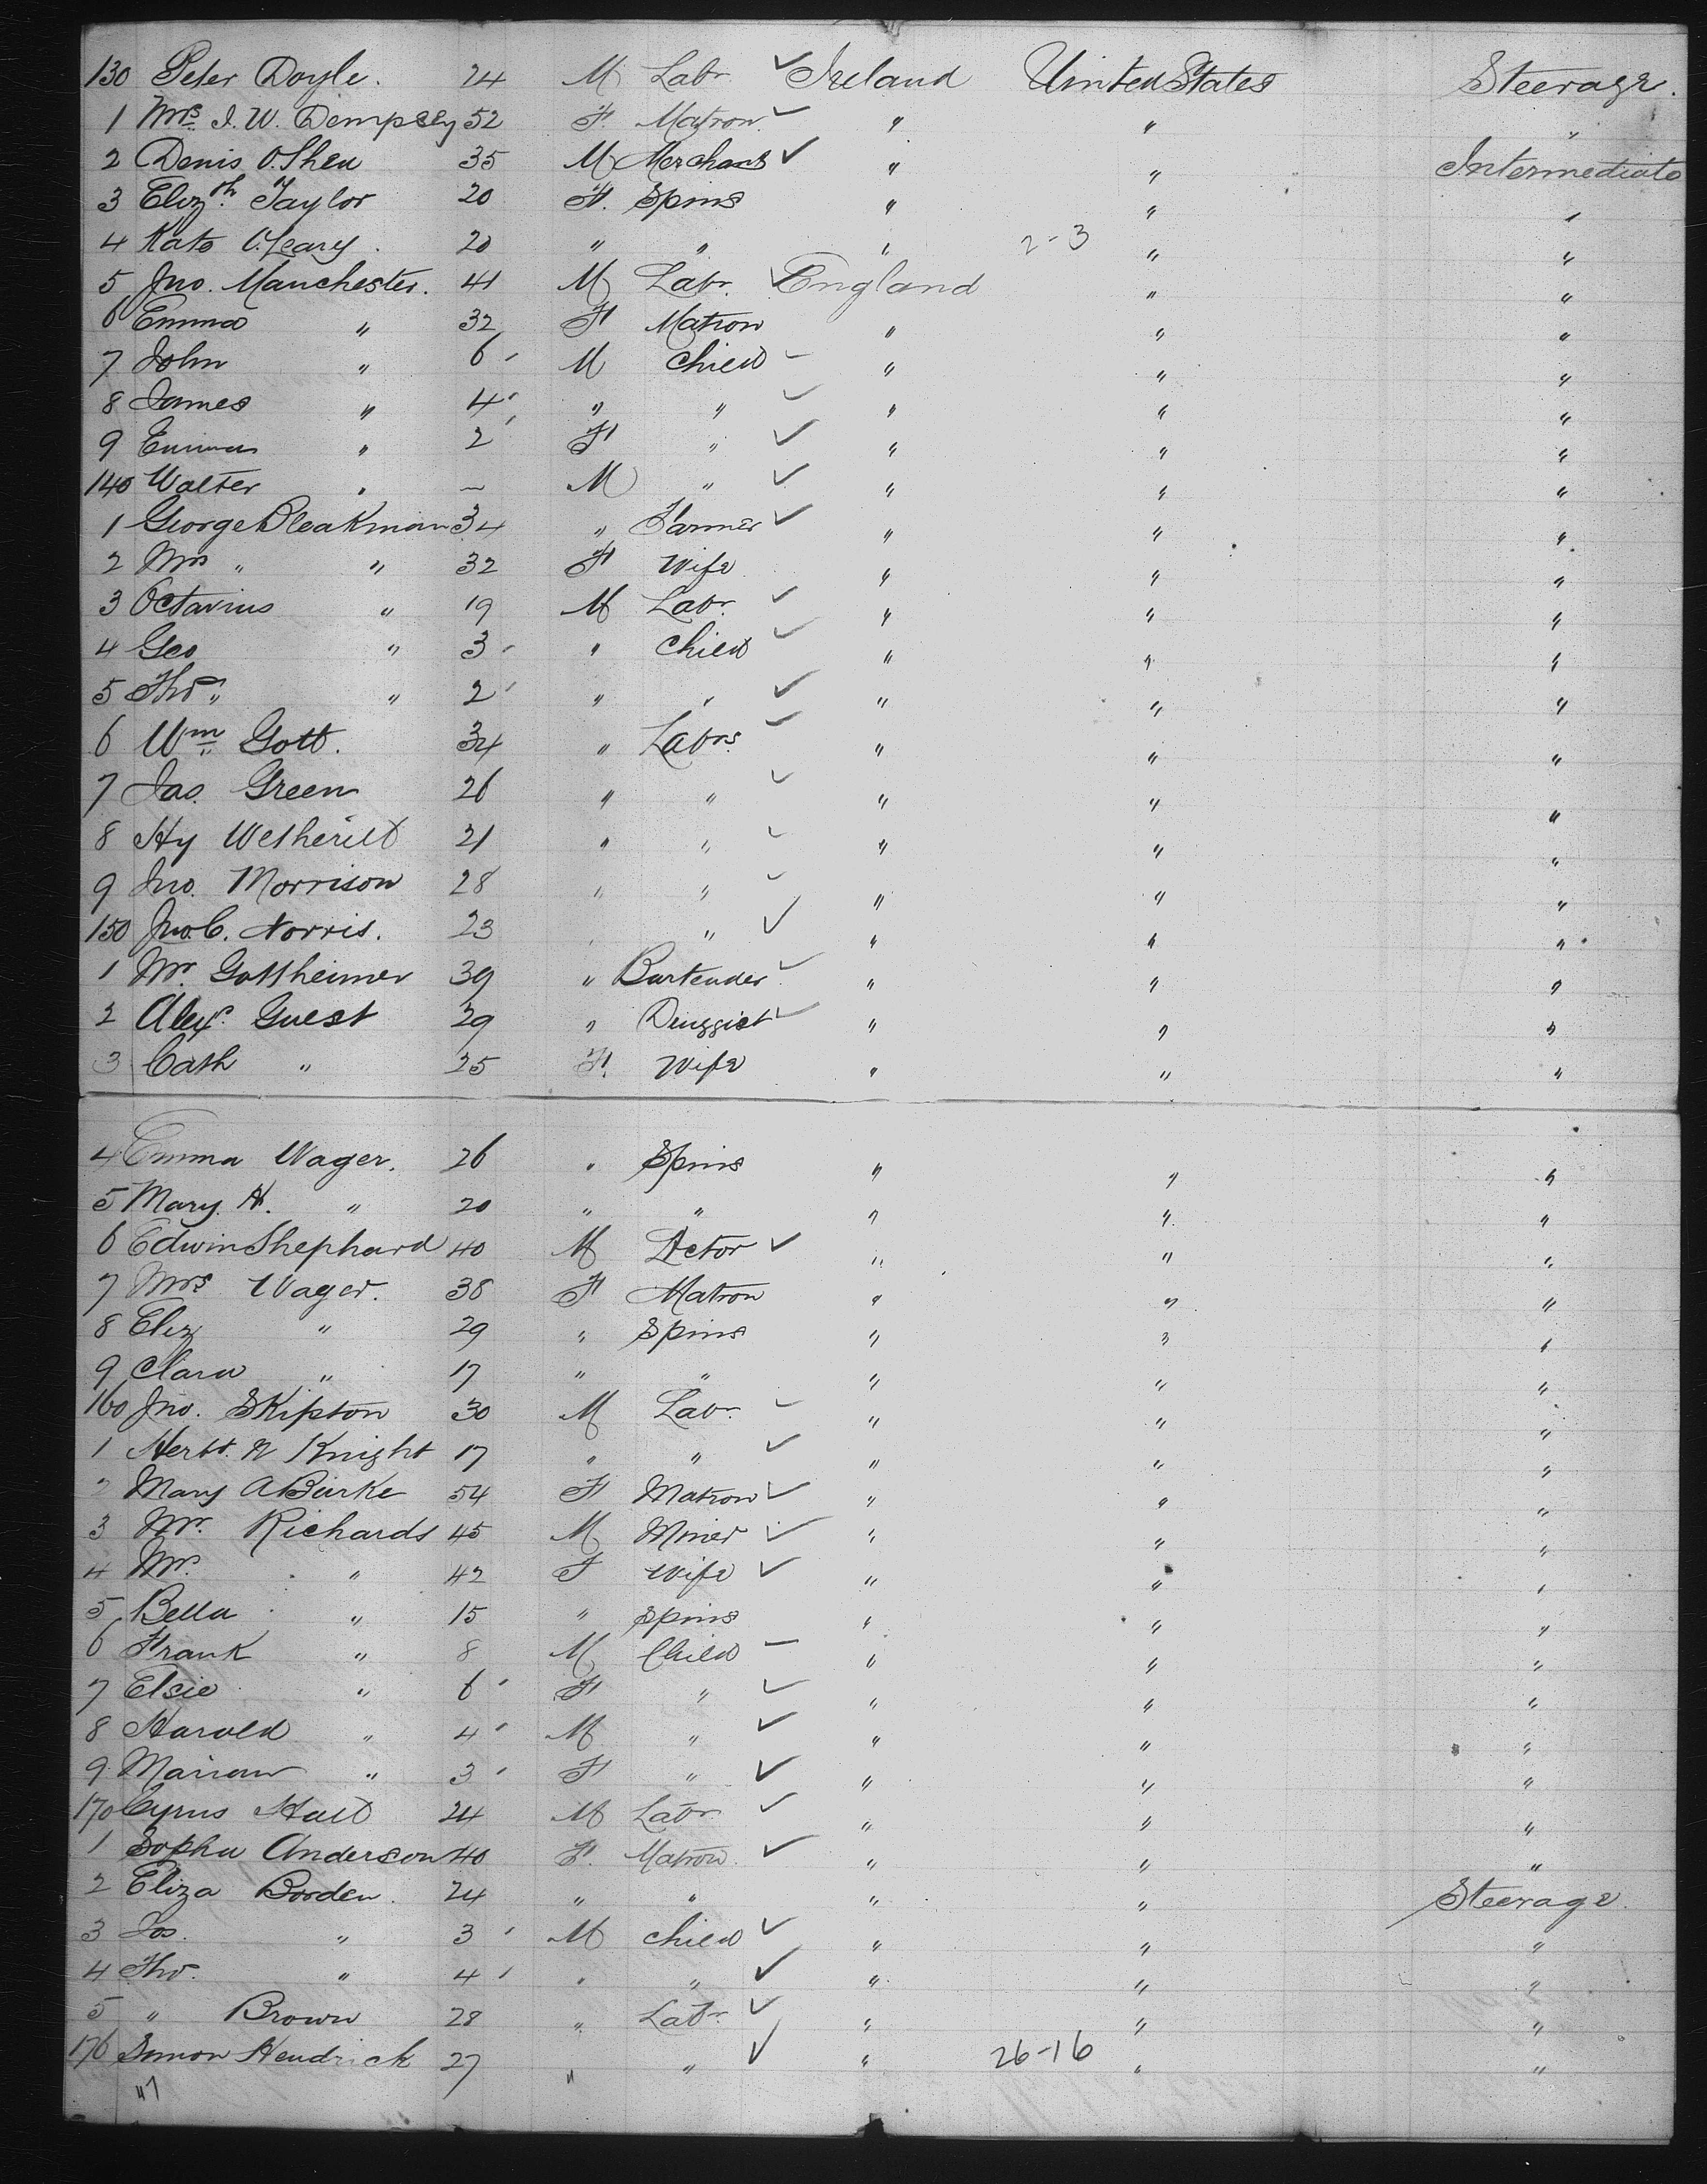 130 Peter Doyle. 24 M Labr ✓ Ireland United States Steerage.
1 Mrs. I. W. Dempsey 52 F. Matron ✓ " " "
2 Denis O.Shea 35 M Merchant ✓ " " Intermediate
3 Elizth. Taylor 20 F. Spins " " "
4 Kate O.Leary. 20 " " " 2-3 " "
5 Jno. Manchester. 41 M Labr. ✓ England " "
6 Emma " 32 F Matron " " "
7 John " 6 M Child - " " "
8 James " 4 " " ✓ " " "
9 Emma " 2 F " ✓ " " "
140 Walter " - M " ✓ " " "
1 George Bleakman 34 " Farmer ✓ " " "
2 Mrs " " 32 F Wife " " "
3 Octavius " 19 M Labr. ✓ " " "
4 Geo " 3 " Child ✓ " " "
5 Thos. " 2 " " ✓ " " "
6 Wm Gott. 34 " Labrs. ✓ " " "
7 Jas. Green 26 " " ✓ " " "
8 Hy Wetherilt 21 " " ✓ " " "
9 Jno. Morrison 28 " " ✓ " " "
150 Jno. C. Norris. 23 " " ✓ " " "
1 Mr. Gottheimer 39 " Bartender ✓ " " "
2 Alexr. Guest 29 " Druggist ✓ " " "
3 Cath " 25 F. Wife " " "
4 Emma Wager. 26 " Spins " " "
5 Mary. H. " 20 " " " " "
6 Edwin Shephard 40 M Actor ✓ " " "
7 Mrs Wager. 38 F Matron " " "
8 Eliz " 29 " Spins " " "
9 Clara " 17 " " " " "
160 Jno. Skipton 30 M Labr. ✓ " " "
1 Herbt. N Knight 17 " " ✓ " " "
2 Mary A Burke 54 F Matron ✓ " " "
3 Mr. Richards 45 M Miner ✓ " " "
4 Mrs. " 42 F Wife ✓ " " "
5 Bella " 15 " Spins " " "
6 Frank " 8 M Child - " " "
7 Elsie " 6 F " ✓ " " "
8 Harold " 4 M " ✓ " " "
9 Marian " 3 F " ✓ " " "
170 Cyrus Hall 24 M Labr ✓ " " "
1 Sophia Anderson 40 F. Matron. ✓ " " "
2 Eliza Borden. 24 " " " " Steerage.
3 Jos. " 3 M Child ✓ " " "
4 Thos. " 4 " " ✓ " " "
5 " Brown 28 " Labr. ✓ " " "
176 Simon Hendrick 27 " " ✓ " 26-16 " "